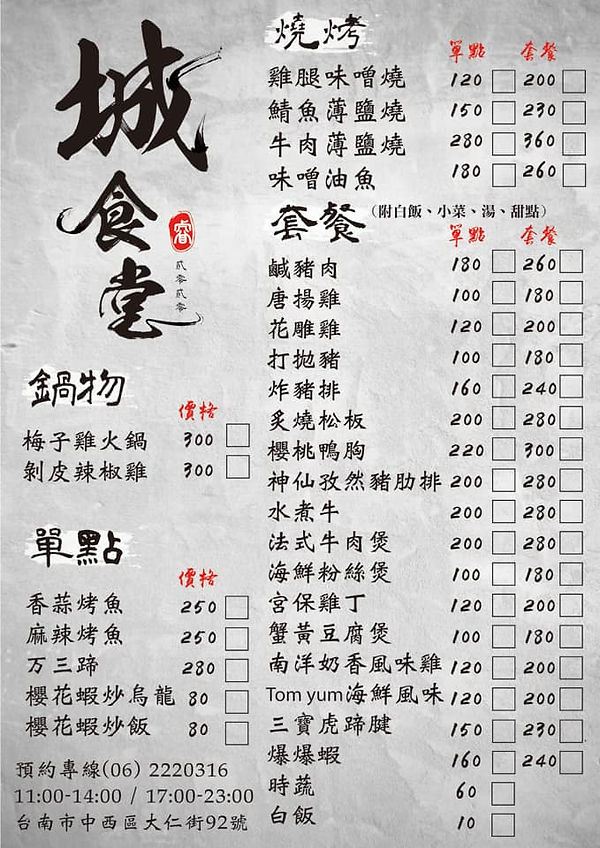 城食堂
睿
貳零貳零
鍋物
價格
梅子雞火鍋 300
剝皮辣椒雞 300
單點
價格
香蒜烤魚 250
麻辣烤魚 250
万三蹄 280
櫻花蝦炒烏龍 80
櫻花蝦炒飯 80
預約專線(06) 2220316
11:00-14:00 / 17:00-23:00
台南市中西區大仁街92號
燒烤
單點 套餐
雞腿味噌燒 120 200
鯖魚薄鹽燒 150 230
牛肉薄鹽燒 280 360
味噌油魚 180 260
套餐(附白飯、小菜、湯、甜點)
單點 套餐
鹹豬肉 180 260
唐揚雞 100 180
花雕雞 120 200
打拋豬 100 180
炸豬排 160 240
炙燒松板 200 280
櫻桃鴨胸 220 300
神仙孜然豬肋排 200 280
水煮牛 200 280
法式牛肉煲 200 280
海鮮粉絲煲 100 180
宮保雞丁 120 200
蟹黃豆腐煲 100 180
南洋奶香風味雞 120 200
Tom yum海鮮風味 120 200
三寶虎蹄腱 150 230
爆爆蝦 160 240
時蔬 60
白飯 10